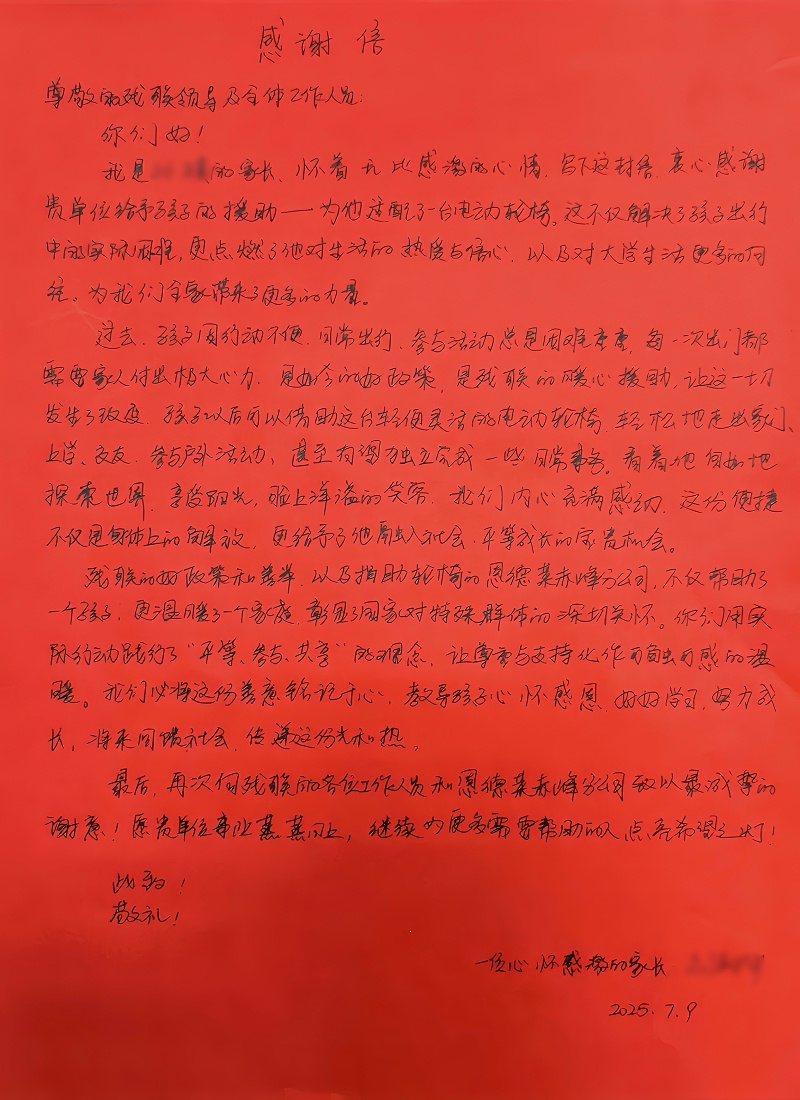 感谢信
尊敬的残联领导及全体工作人员:
你们好!
我是 的家长、怀着无比感激的心情,写下这封信,衷心感谢
贵单位给予孩子的援助——为他适配了一台电动轮椅。这不仅解决了孩子出行
中的实际困难,更点燃了他对生活的热爱与信心,以及对大学生活更多的向
往。为我们全家带来了更多的力量。
过去,孩子因行动不便,日常出行、参与活动总是困难重重,每一次出门都
需要家人付出极大心力。是如今的好政策,是残联的暖心援助,让这一切
发生了改变。孩子以后可以借助这台轻便灵活的电动轮椅,轻松地走出家门、
上学、交友、参与户外活动、甚至有望独立完成一些日常事务。看着他自如地
探索世界,享受阳光,脸上洋溢的笑容,我们内心充满感动,这份便捷
不仅是身体上的解放,更给予了他融入社会、平等成长的宝贵机会。
残联的好政策和善举,以及捐助轮椅的恩德莱赤峰分公司,不仅帮助了
一个孩子,更温暖了一个家庭,彰显了国家对特殊群体的深切关怀。你们用实
际行动践行了“平等、参与、共享”的理念,让尊重与支持化作可触可感的温
暖。我们必将这份善意铭记于心,教导孩子心怀感恩,好好学习,努力成
长,将来回馈社会,传递这份光和热。
最后,再次向残联的各位工作人员和恩德莱赤峰分公司致以最诚挚的
谢意!愿贵单位事业蒸蒸日上,继续为更多需要帮助的人点亮希望之灯!
此致!
敬礼!
一位心怀感激的家长
2025.7.9